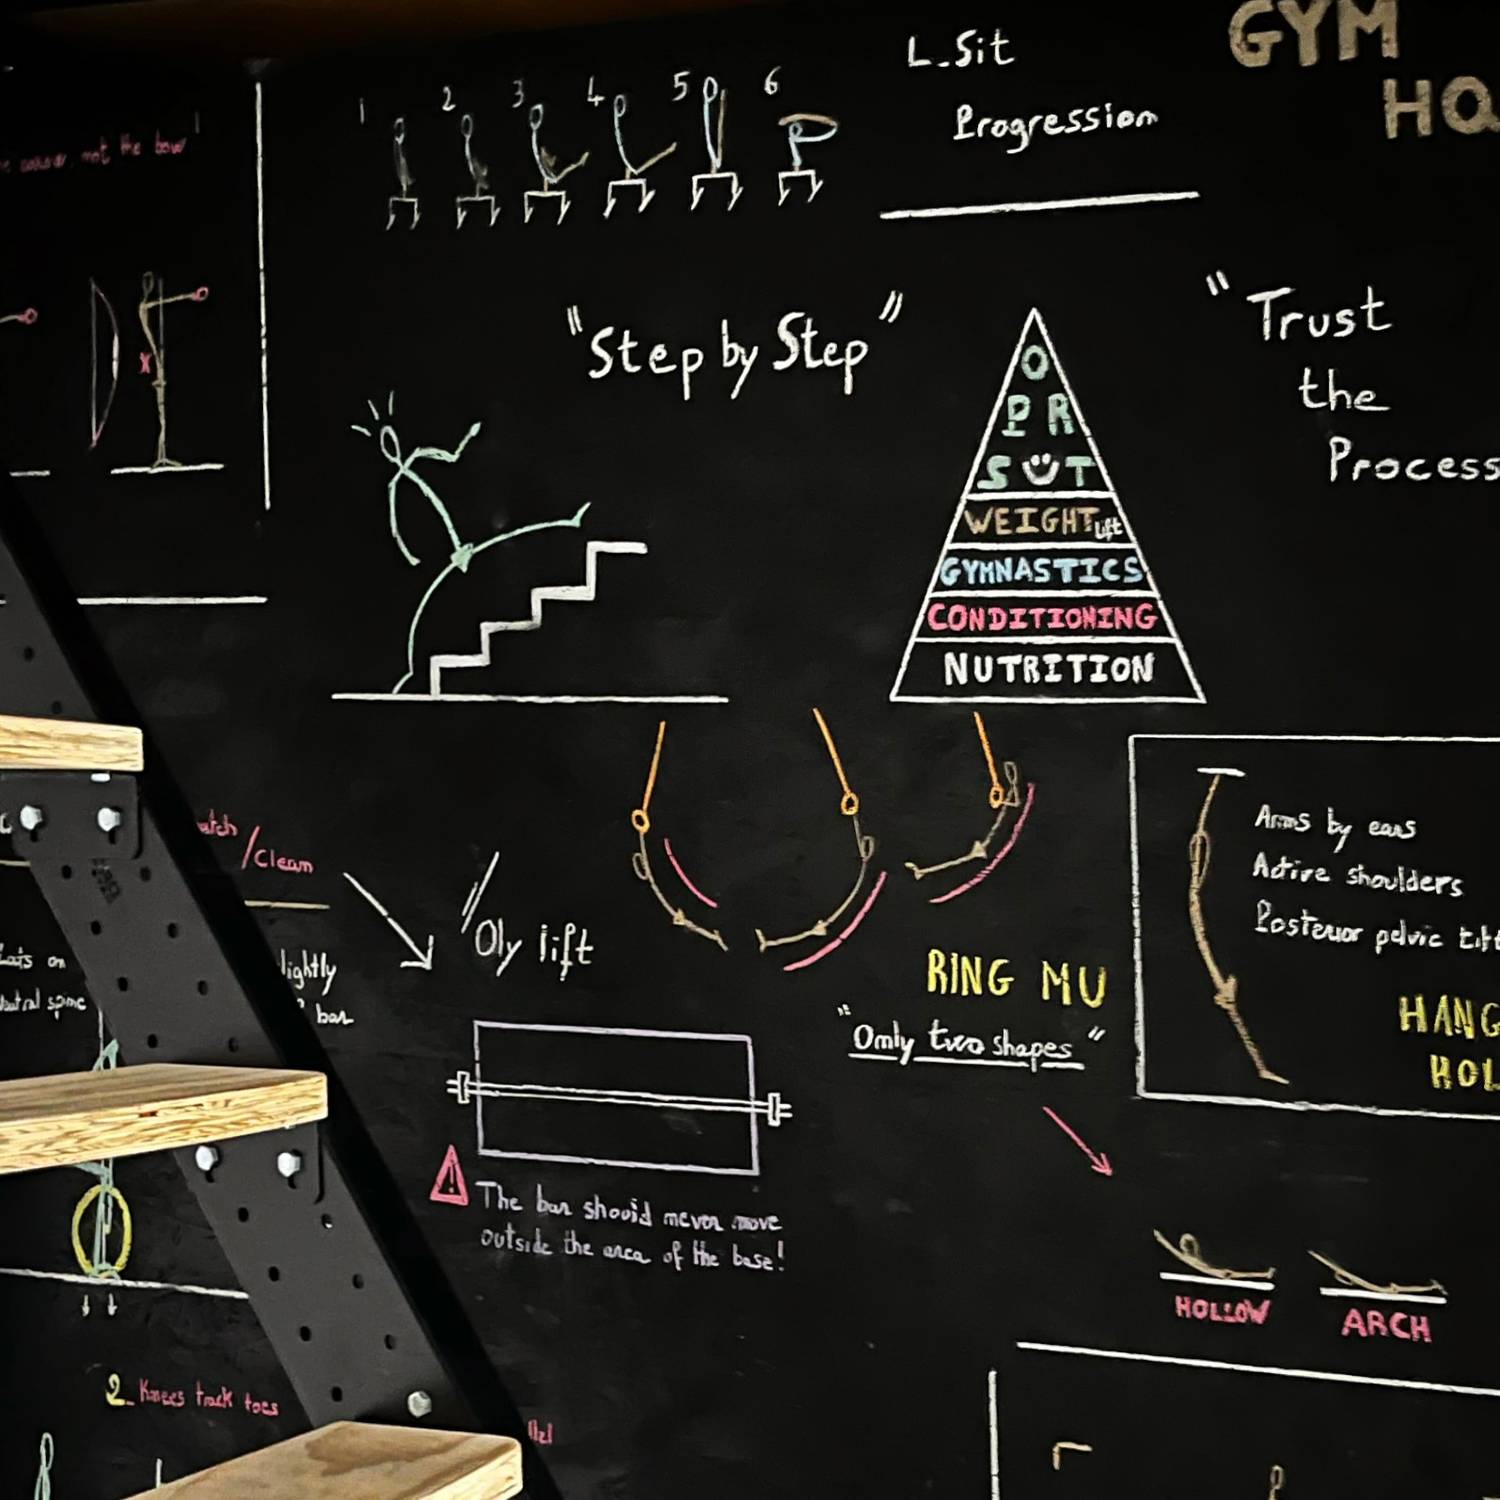 GYM
HQ
L-Sit
Progression
1 2 3 4 5 6
not the bow
"Step by Step"
"Trust
the
Process
O
P R
S U T
WEIGHT Lift
GYMNASTICS
CONDITIONING
NUTRITION
/Clean
Oly lift
Lats on
spine
bar
Arms by ears
Active shoulders
Posterior pelvic tilt
HANG
HOL
RING MU
"Only two shapes"
The bar should never move
outside the area of the base!
HOLLOW
ARCH
2_ Knees track toes